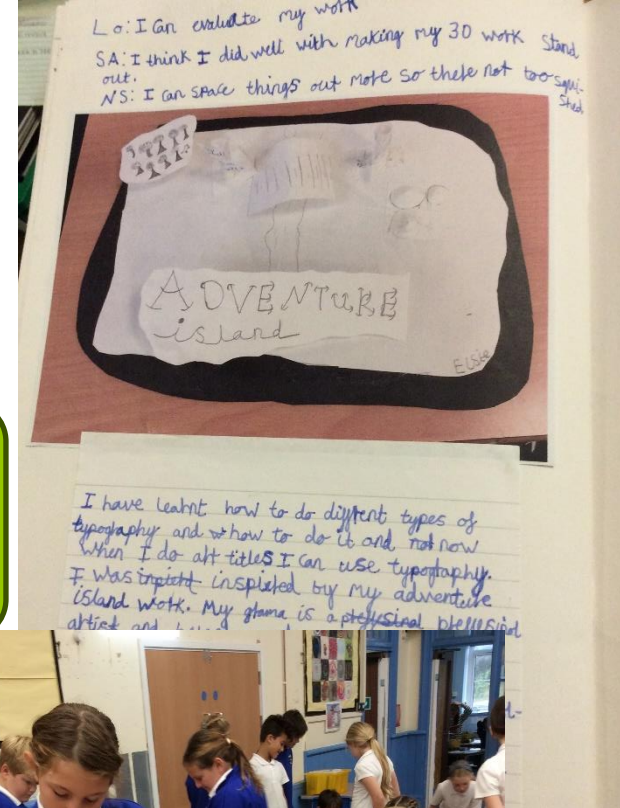 Lo: I Can evaluate my work
SA: I think I did well with making my 3D work Stand
out.
NS: I can space things out more so there not too squi-
shed
ADVENTURE
island
Elsie
I have learnt how to do diffrent types of
typography and how to do it and now
when I do art titles I can use typography.
I was inspired by my adventure
island work. My grama is a
artist and